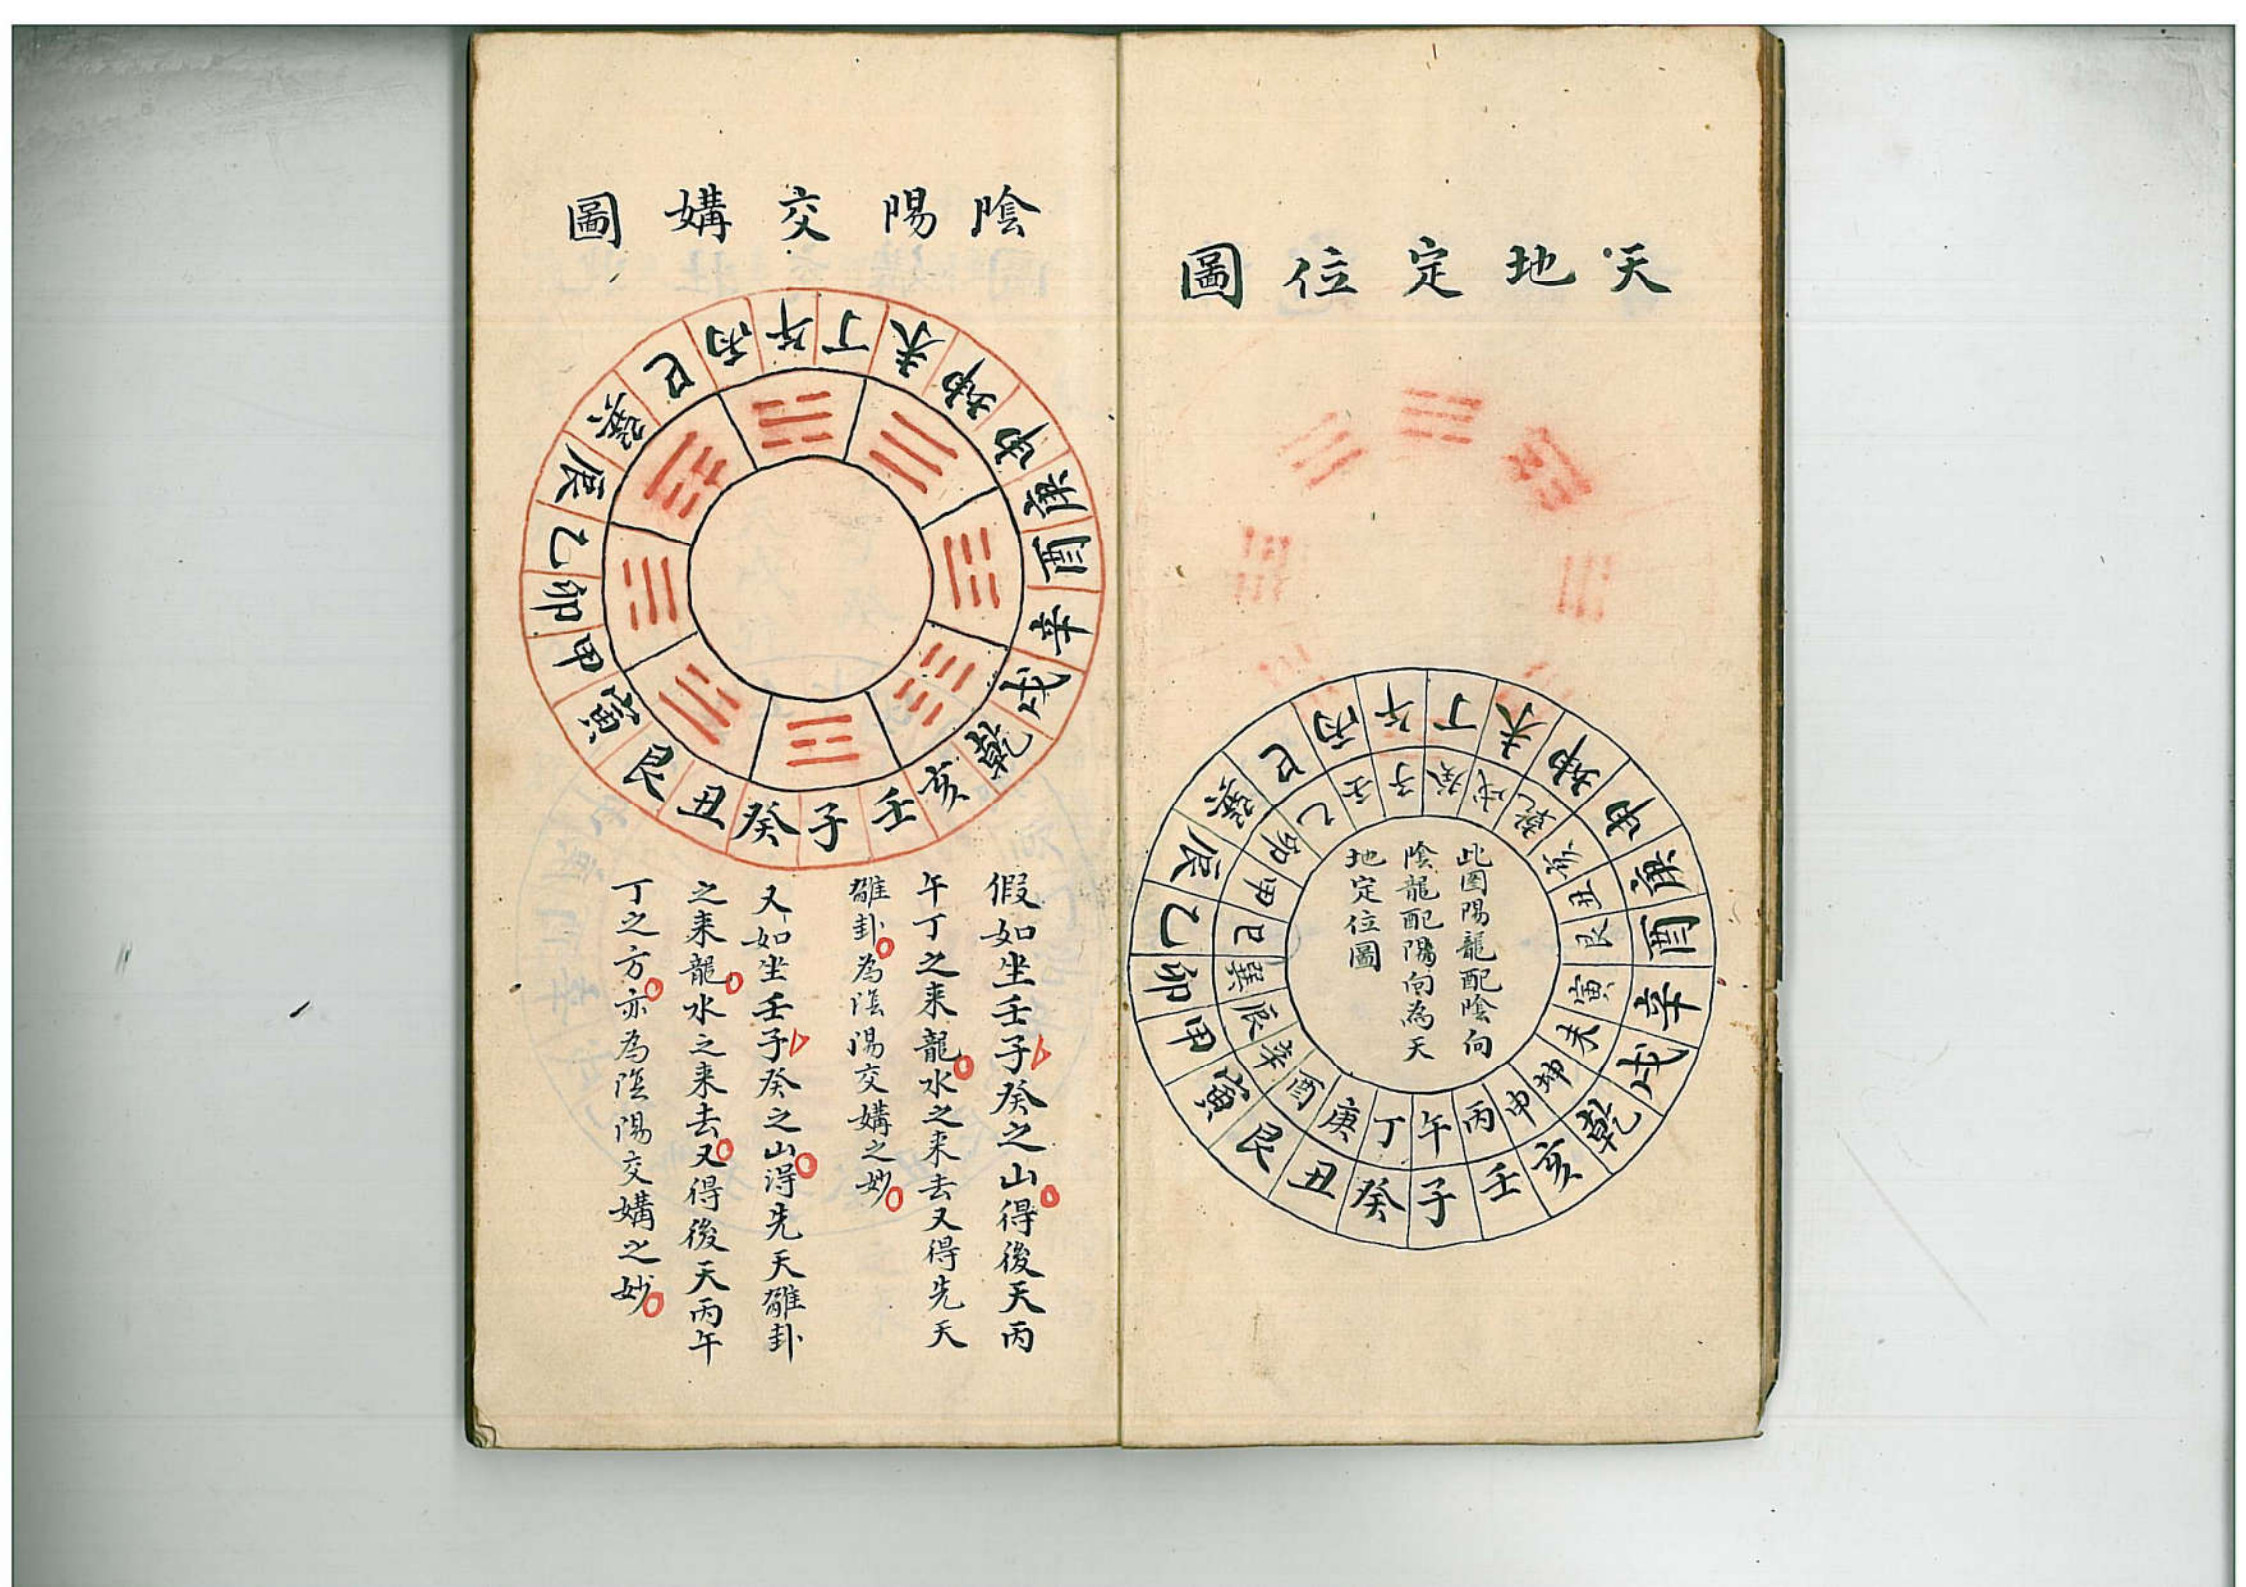 天地定位圖
丁未坤申庚酉辛戌乾亥壬子癸丑艮寅甲卯乙辰巽巳丙午
癸戌乾亥丑艮寅未坤申丙午丁庚酉辛辰巽巳甲卯乙壬子
此圖陽龍配陰向
陰龍配陽向為天
地定位圖
陰陽交媾圖
丁未坤申庚酉辛戌乾亥壬子癸丑艮寅甲卯乙辰巽巳丙午
假如坐壬子癸之山得後天丙
午丁之来龍水之来去又得先天
雒卦為陰陽交媾之妙
又如坐壬子癸之山得先天雒卦
之来龍水之来去又得後天丙午
丁之方亦為陰陽交媾之妙